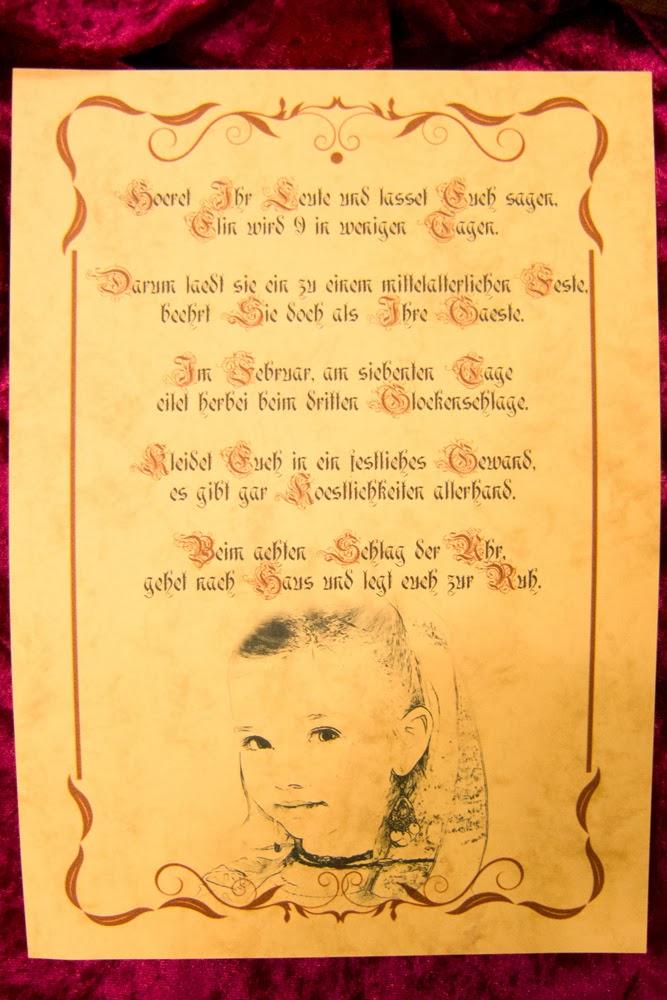 Hoeret Ihr Leute und lasset Euch sagen,
Elin wird 9 in wenigen Tagen.
Darum laedt sie ein zu einem mittelalterlichen Feste,
beehrt Sie doch als Ihre Gaeste.
Im Februar, am siebenten Tage
eilet herbei beim dritten Glockenschlage.
Kleidet Euch in ein festliches Gewand,
es gibt gar Koestlichkeiten allerhand.
Beim achten Schlag der Uhr,
gehet nach Haus und legt euch zur Ruh.